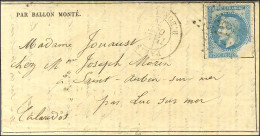 PAR BALLON MONTÉ.
Madame Jouaust
chez Mr Joseph Morin
Saint-Aubin sur mer
par Luc sur mer
Calvados